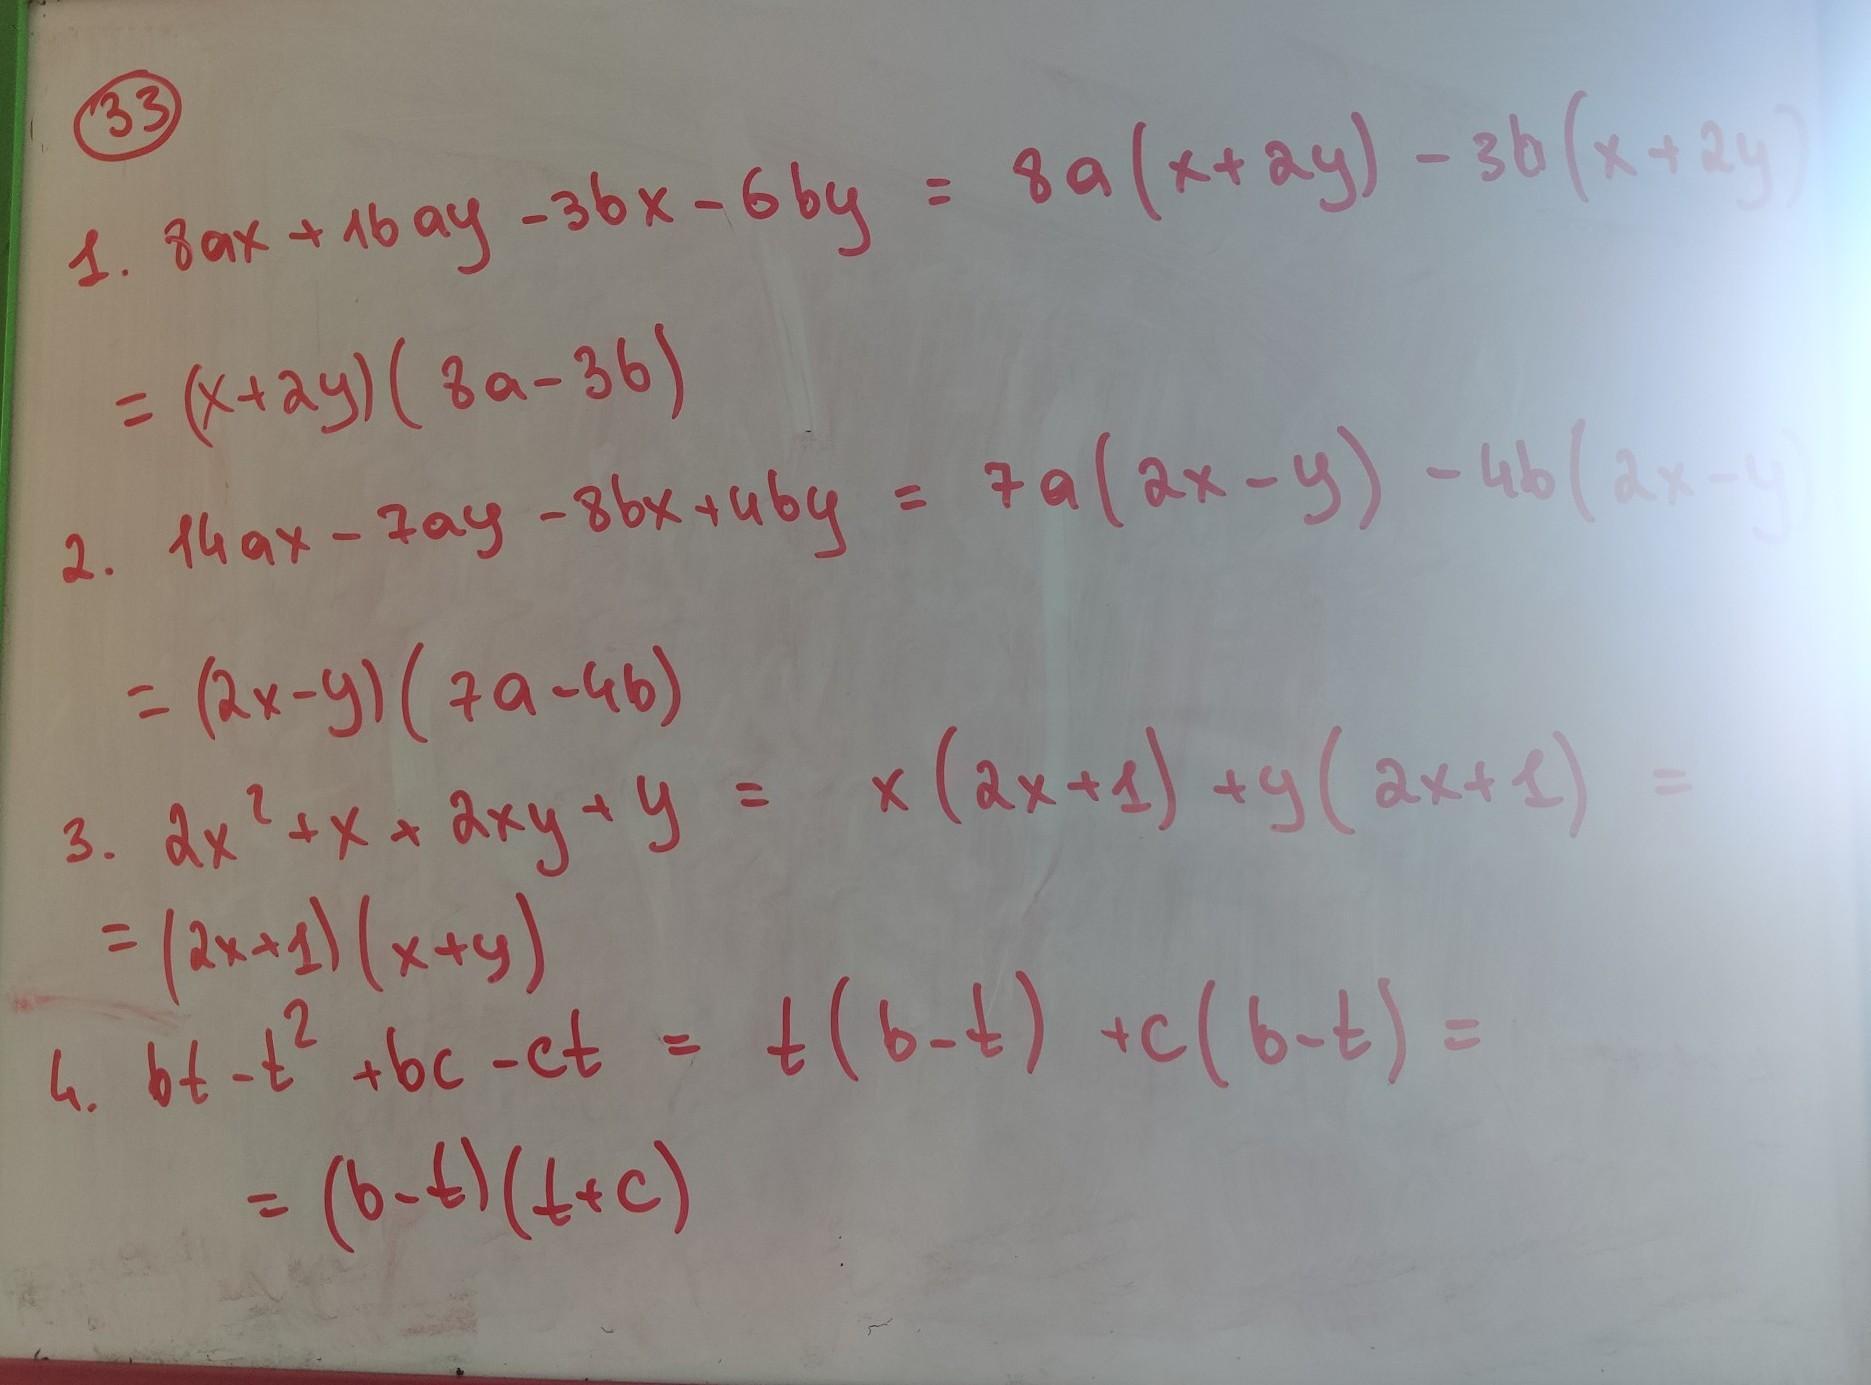 33
1. 8ax + 16ay - 3bx - 6by = 8a(x+2y) - 3b(x+2y)
= (x+2y)(8a-3b)
2. 14ax - 7ay - 8bx + 4by = 7a(2x-y) - 4b(2x-y)
= (2x-y)(7a-4b)
3. 2x² + x + 2xy + y = x(2x+1) + y(2x+1) =
= (2x+1)(x+y)
4. bt - t² + bc - ct = t(b-t) + c(b-t) =
= (b-t)(t+c)